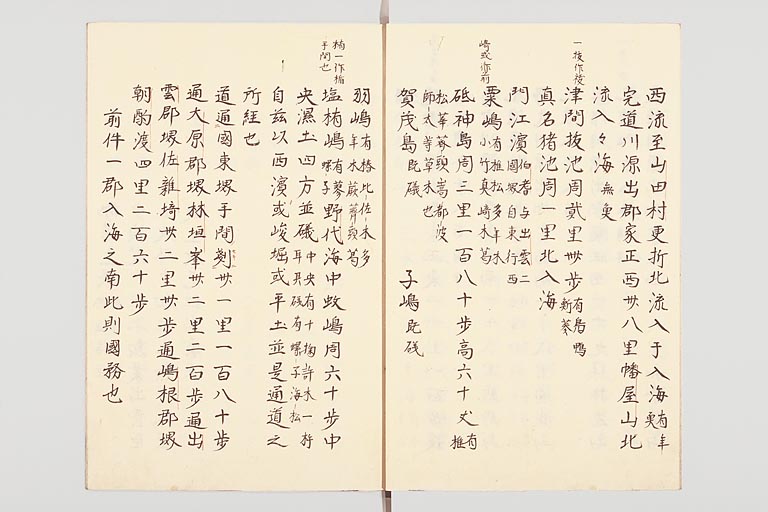 西流至山田村更折北流入于入海有年魚
宍道川源出郡家正西卅八里幡屋山北
流入々海無魚
一抜作枝
津間抜池周貳里卅歩有鳧鴨新蓼
真名猪池周一里北入海
門江濱伯耆与出雲二国堺自東行西
粟嶋有推松多年木小竹真崎木葛
崎或亦前
砥神島周三里一百八十歩高六十丈有推
松莘薺頭蒿都波師太等草木也
賀茂島既礒
子嶋既礒
羽嶋有椿比佐木多年木蕨薺頭蒿
楯一作楯
手間也
塩楯嶋有蓼螺子野代海中蚊嶋周六十歩中
央濕土四方並礒中央有十掬許木一株耳其礒有螺子海松
自茲以西濱或峻堀或平土並是通道之
所經也
道通國東堺手間剗卅一里一百八十歩
通大原郡堺林垣峯卅二里二百歩通出
雲郡堺佐雜埼卅二里卅歩通嶋根郡堺
朝酌渡四里二百六十歩
前件一郡入海之南此則國務也